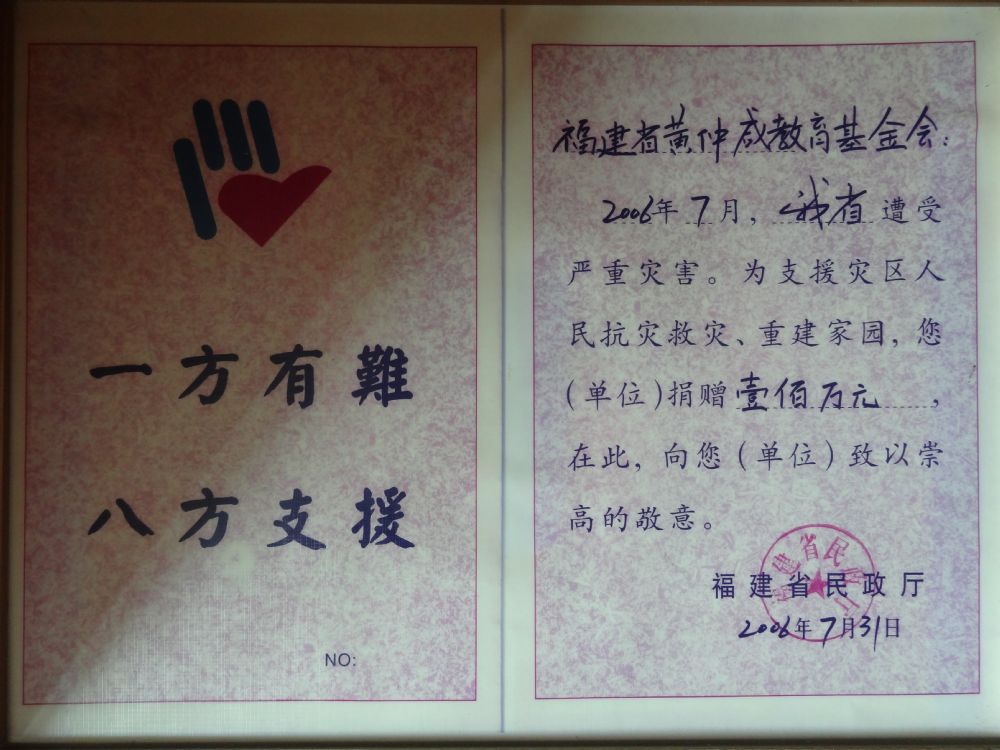 一方有難
八方支援
NO:
福建省黄仲咸教育基金会：
2006年7月，我省遭受
严重灾害。为支援灾区人
民抗灾救灾、重建家园，您
（单位）捐赠壹佰万元，
在此，向您（单位）致以崇
高的敬意。
福建省民政厅
福建省民政厅
2006年7月31日